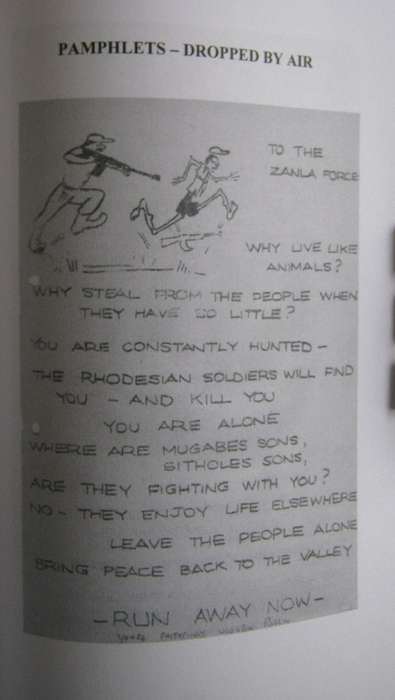 PAMPHLETS – DROPPED BY AIR
TO THE
ZANLA FORCE
WHY LIVE LIKE
ANIMALS?
WHY STEAL FROM THE PEOPLE WHEN
THEY HAVE SO LITTLE?
YOU ARE CONSTANTLY HUNTED –
THE RHODESIAN SOLDIERS WILL FIND
YOU – AND KILL YOU
YOU ARE ALONE
WHERE ARE MUGABES SONS,
SITHOLES SONS,
ARE THEY FIGHTING WITH YOU?
NO – THEY ENJOY LIFE ELSEWHERE
LEAVE THE PEOPLE ALONE
BRING PEACE BACK TO THE VALLEY
– RUN AWAY NOW –